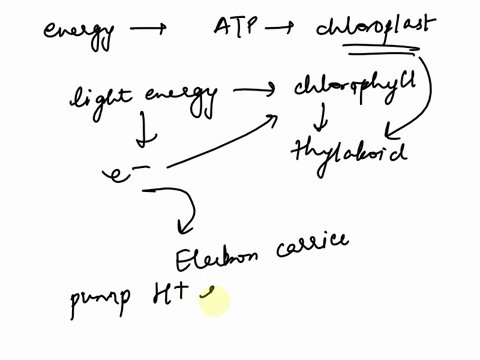 energy → ATP → chloroplast
light energy → chlorophyll
e⁻ thylakoid
Electron carrice
pump H+